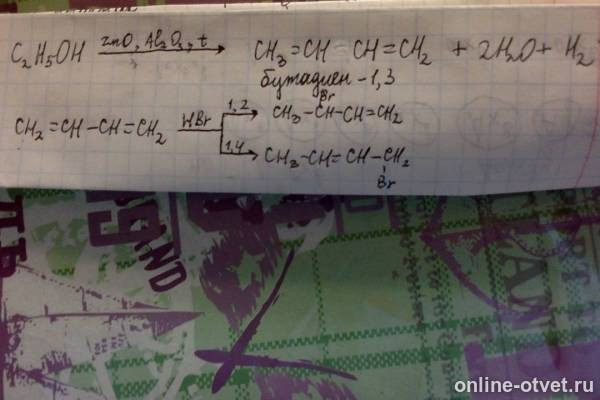 C₂H₅OH ZnO, Al₂O₃, t → CH₃=CH CH=CH₂ + 2H₂O + H₂
бутадиен-1,3
CH₂=CH-CH=CH₂ HBr 1,2 → CH₃-CH-CH=CH₂
Br
1,4 → CH₃-CH=CH-CH₂
Br
AND
AND
online-otvet.ru